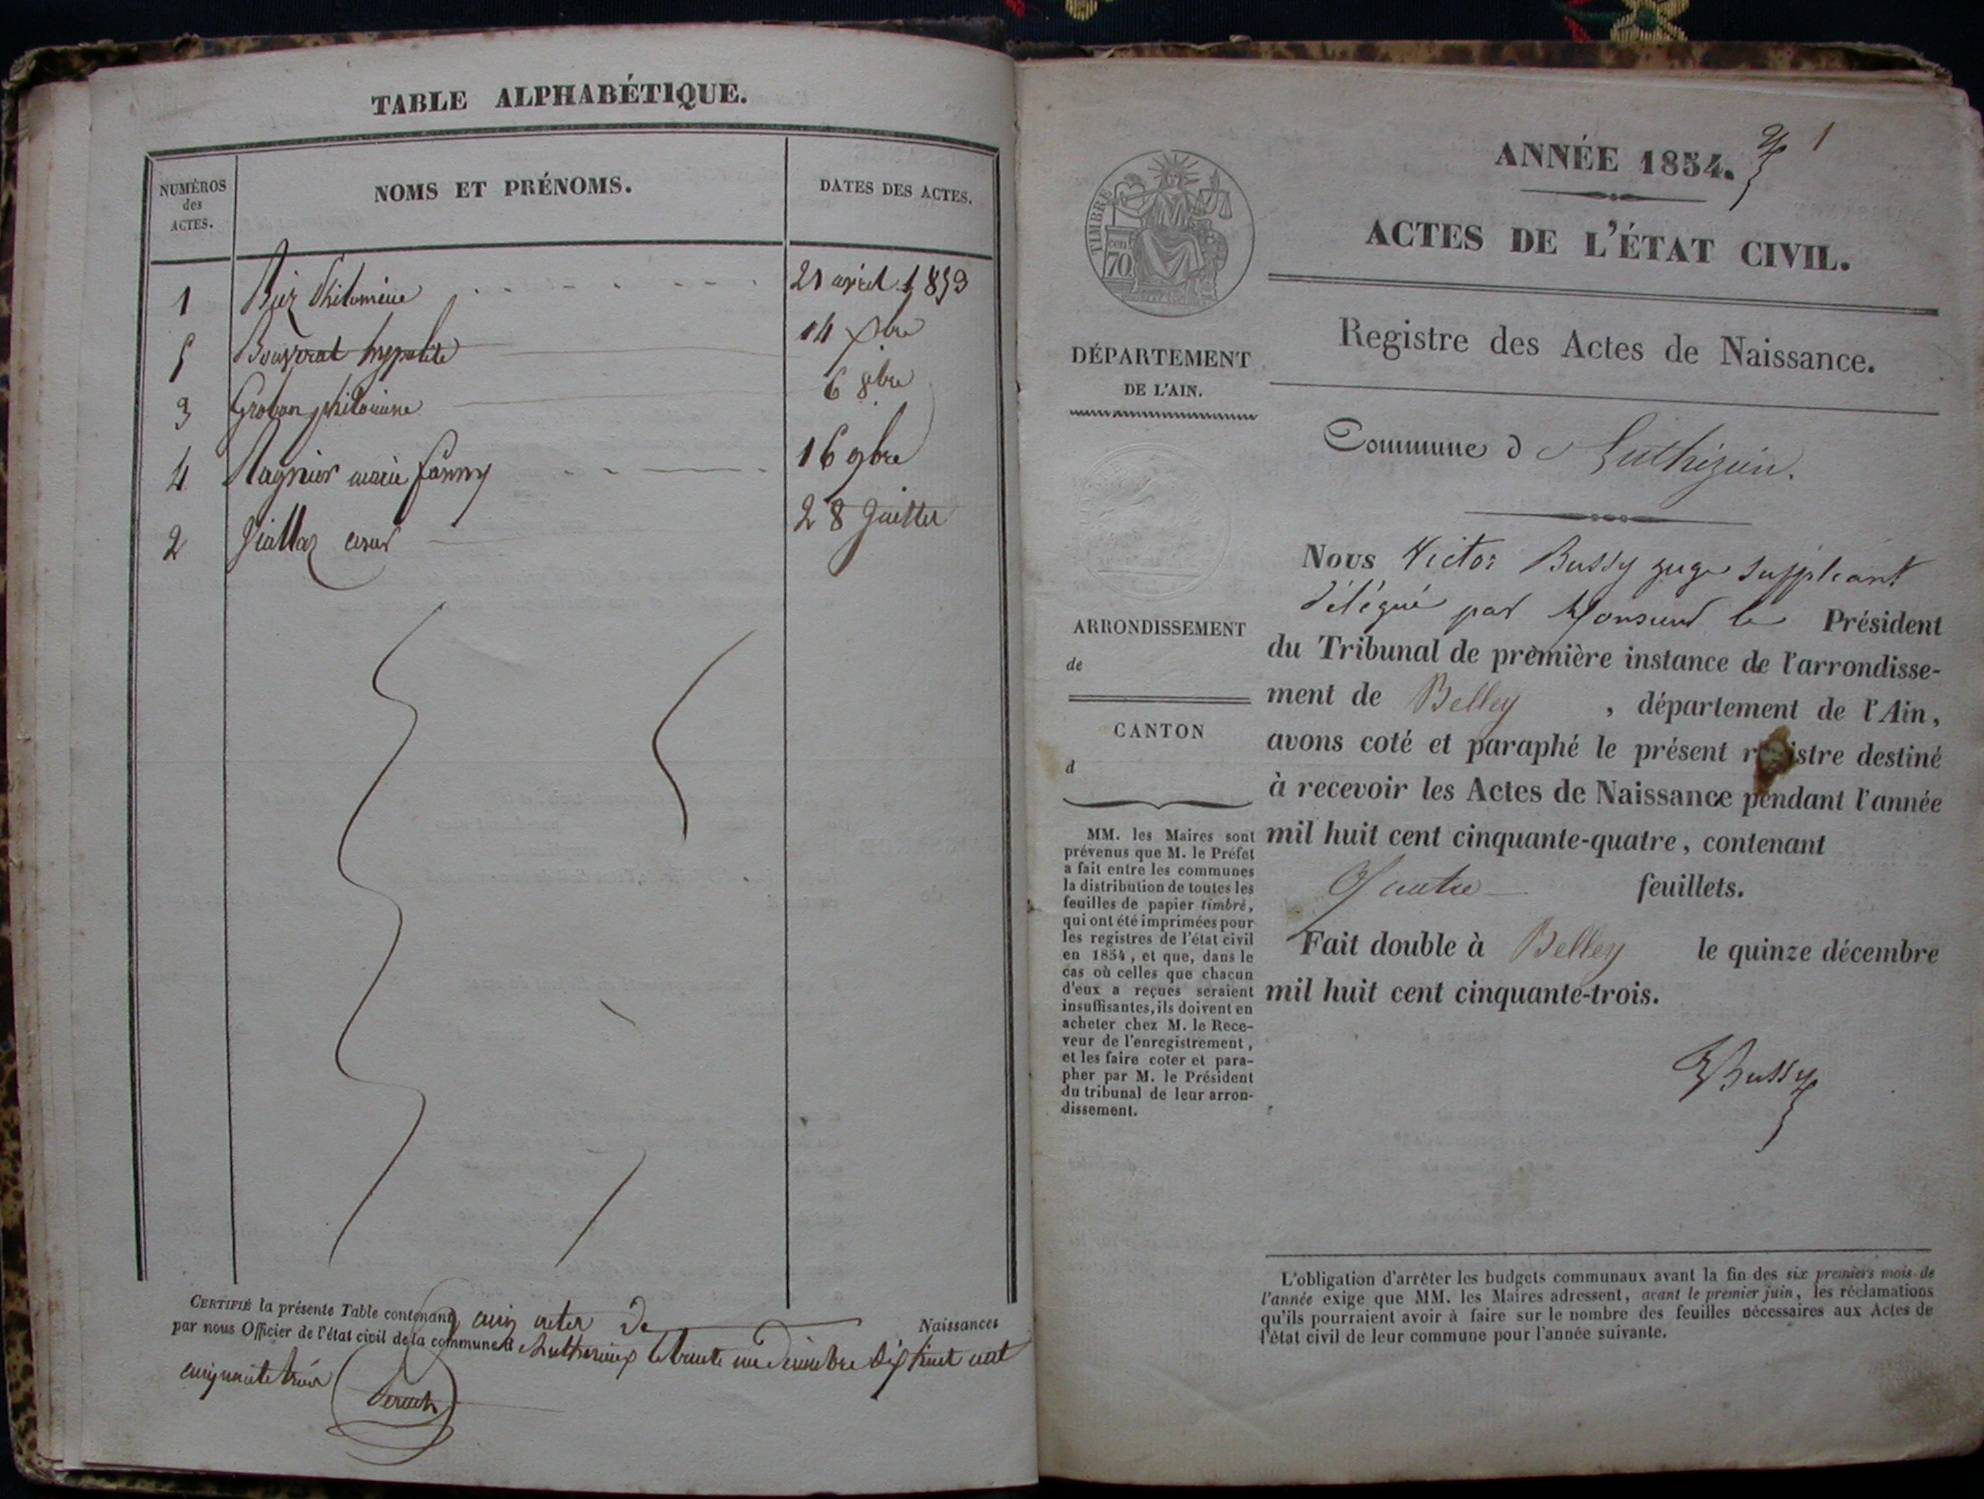 TABLE ALPHABÉTIQUE.
NUMÉROS
des
ACTES.
NOMS ET PRÉNOMS.
DATES DES ACTES.
1 Philomène 21 avril 1853
5 hypolite 14 xbre
3 philomene 6 8bre
4 marie fanny 16 9bre
2 28 Juillet
CERTIFIÉ la présente Table contenant cinq actes de Naissances
par nous Officier de l'état civil de la commune d le trente un Décembre huit cent
cinquante trois
ANNÉE 1854. 1
ACTES DE L'ÉTAT CIVIL.
TIMBRE
cen
70
Registre des Actes de Naissance.
DÉPARTEMENT
DE L'AIN.
ARRONDISSEMENT
de
CANTON
d
MM. les Maires sont
prévenus que M. le Préfet
a fait entre les communes
la distribution de toutes les
feuilles de papier timbré,
qui ont été imprimées pour
les registres de l'état civil
en 1854, et que, dans le
cas où celles que chacun
d'eux a reçues seraient
insuffisantes, ils doivent en
acheter chez M. le Rece-
veur de l'enregistrement,
et les faire coter et para-
pher par M. le Président
du tribunal de leur arron-
dissement.
Commune d
Nous Victor Bussy juge suppléant
délégué par Monsieur le Président
du Tribunal de première instance de l'arrondisse-
ment de Belley, département de l'Ain,
avons coté et paraphé le présent registre destiné
à recevoir les Actes de Naissance pendant l'année
mil huit cent cinquante-quatre, contenant
Quatre feuillets.
Fait double à Belley le quinze décembre
mil huit cent cinquante-trois.
VBussy
L'obligation d'arrêter les budgets communaux avant la fin des six premiers mois de
l'année exige que MM. les Maires adressent, avant le premier juin, les réclamations
qu'ils pourraient avoir à faire sur le nombre des feuilles nécessaires aux Actes de
l'état civil de leur commune pour l'année suivante.